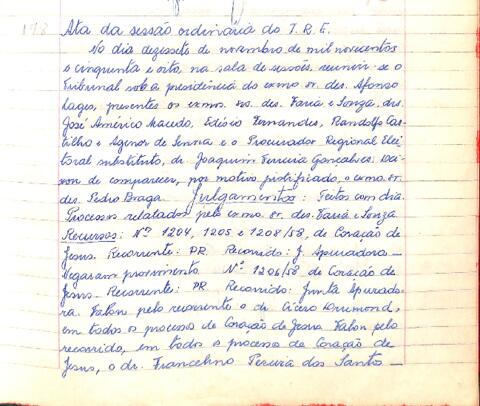 198
Ata da sessão ordinária do T. R. E.
No dia dezessete de novembro de mil novecentos
e cinquenta e oito, na sala de sessões, reuniu-se o
Tribunal sob a presidência do exmo sr. des. Afonso
Lages, presentes os exmos. srs. des. Faria e Souza, drs.
José Américo Macedo, Edésio Fernandes, Randolfo Cas-
tilho e Agenor de Senna e o Procurador Regional Elei-
toral substituto, dr. Joaquim Ferreira Gonçalves. Dei-
xou de comparecer, por motivo justificado, o exmo. sr.
des. Pedro Braga. Julgamentos: Feitos com dia.
Processos relatados pelo exmo sr. des. Faria e Souza
Recursos: Nº 1204, 1205 e 1208/58, de Coração de
Jesus. Recorrente: PR. Recorrido: J. Apuradora _
Negaram provimento. Nº 1206/58 de Coração de
Jesus _ Recorrente: PR. Recorrido: Junta Apurado-
ra. Falou pelo recorrente o dr. Cícero Drumond,
em todos os processos de Coração de Jesus. Falou pelo
recorrido, em todos os processos de Coração de
Jesus, o dr. Francelino Pereira dos Santos _